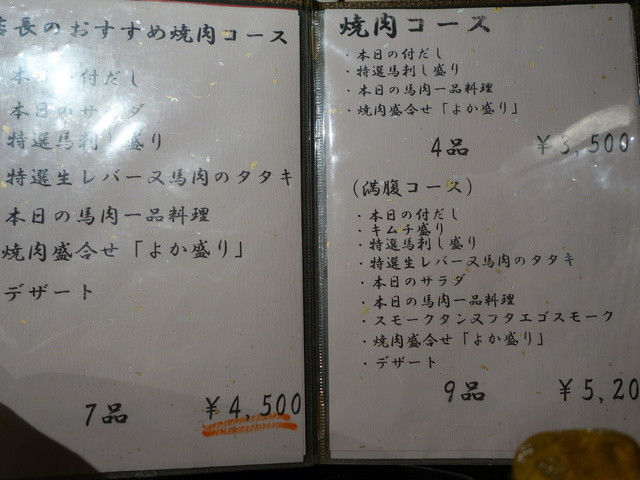 店長のおすすめ焼肉コース
本日の付だし
本日のサラダ
特選馬刺し盛り
特選生レバー又馬肉のタタキ
本日の馬肉一品料理
焼肉盛合せ「よか盛り」
デザート
7品 ¥4,500
焼肉コース
・本日の付だし
・特選馬刺し盛り
・本日の馬肉一品料理
・焼肉盛合せ「よか盛り」
4品 ¥3,500
(満腹コース)
・本日の付だし
・キムチ盛り
・特選馬刺し盛り
・特選生レバー又馬肉のタタキ
・本日のサラダ
・本日の馬肉一品料理
・スモークタン又フタエゴスモーク
・焼肉盛合せ「よか盛り」
・デザート
9品 ¥5,20